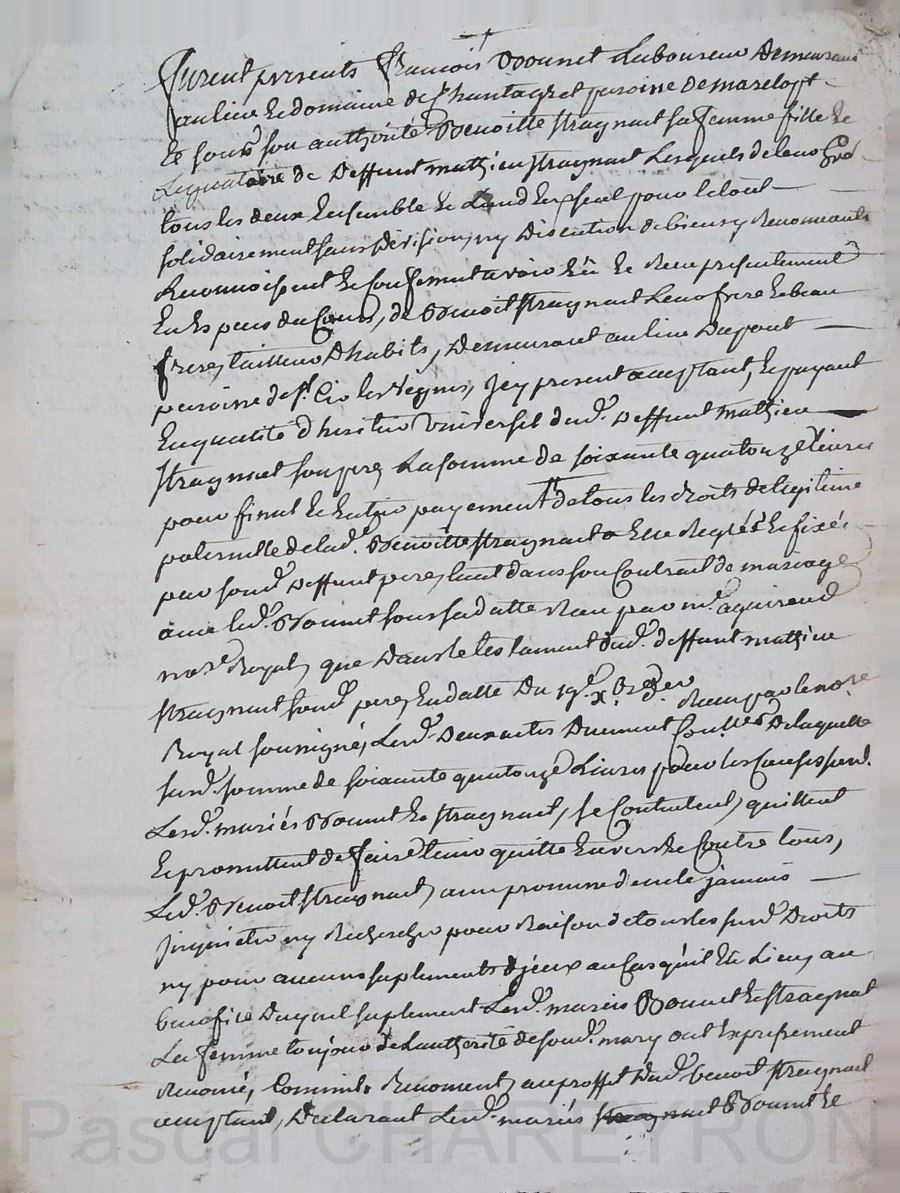 furent presents François Bonnet Laboureur Demeurant
au lieu et domaine de Chantagret paroisse de marclopt
Et sous son authorité Benoitte Stragnat sa femme fille et
Legataire de deffunt mathieu Stragnat Lesquels de leur gré
tous les deux Ensemble et L'und Eux seul pour le tout
solidairement sans division, ny discution de biens y Renonceants
Reconnoissent et Confessent avoir Eû et Receu presentement
En Especes du Cours, de Benoit Stragnat Leur frere et beau
frere, tailleur D'habits, Demeurant au lieu Dupont
paroisse de St. Cir les Vignes, Icy present acceptant, et payant
En qualité d'heritier Universel dud. deffunt mathieu
Stragnat son pere, La somme de soixante quatorze livres
pour final et Entier payement de tous les droits de legitime
paternelle de lad. Benoitte Stragnat a Elle Reglés et fixés
par sond. deffunt pere, tant dans son Contrat de mariage
avec led. Bonnet sous sa datte Receu par me. aguiraud
nore. Royal, que dans le testament dud. deffunt mathieu
Stragnat sond. pere, En datte Du 19e. xbre. der
Receu par le nore.
Royal soussigné, Lesd. Deux actes Duement Conllés De laquelle
surd. somme de soixante quatorze Livres pour les Causes surd.
Lesd. mariés Bonnet Et Stragnat, se Contentent, quittent
Et promettent de faire tenir quitte Envers et Contre tous,
Led. Benoit Stragnat, avec promesse de ne le jamais
Inquieter ny Rechercher pour Raison de tous les surd. Droits
ny pour aucuns suplements d'jeux au Cas qu'il Eÿ Lieu, au
benefice Duquel suplement Lesd. mariés Bonnet Et Stragnat
La femme toujour de L'authorité de sond. mary ont Expressement
Renoncé, Comme Renoncent, au proffit Dud. benoit Stragnat
acceptant, Declarant Lesd. mariés Bonnet Et
Pascal CHAREYRON